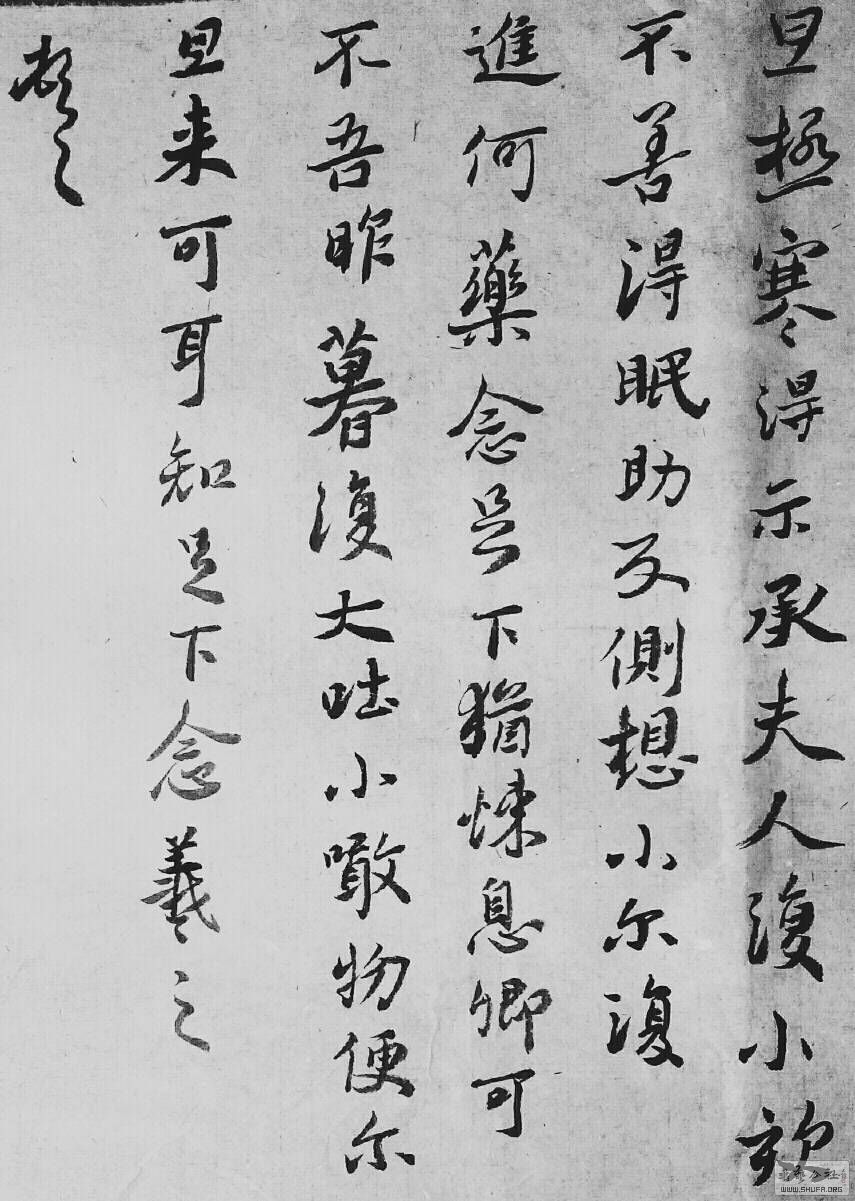 旦極寒得示承夫人復小欬
不善得眠助反側想小尔復
進何藥念足下猶悚息卿可
不吾昨暮復大吐小噉物便尔
旦来可耳知足下念羲之
頓首
WWW.SHUFA.ORG